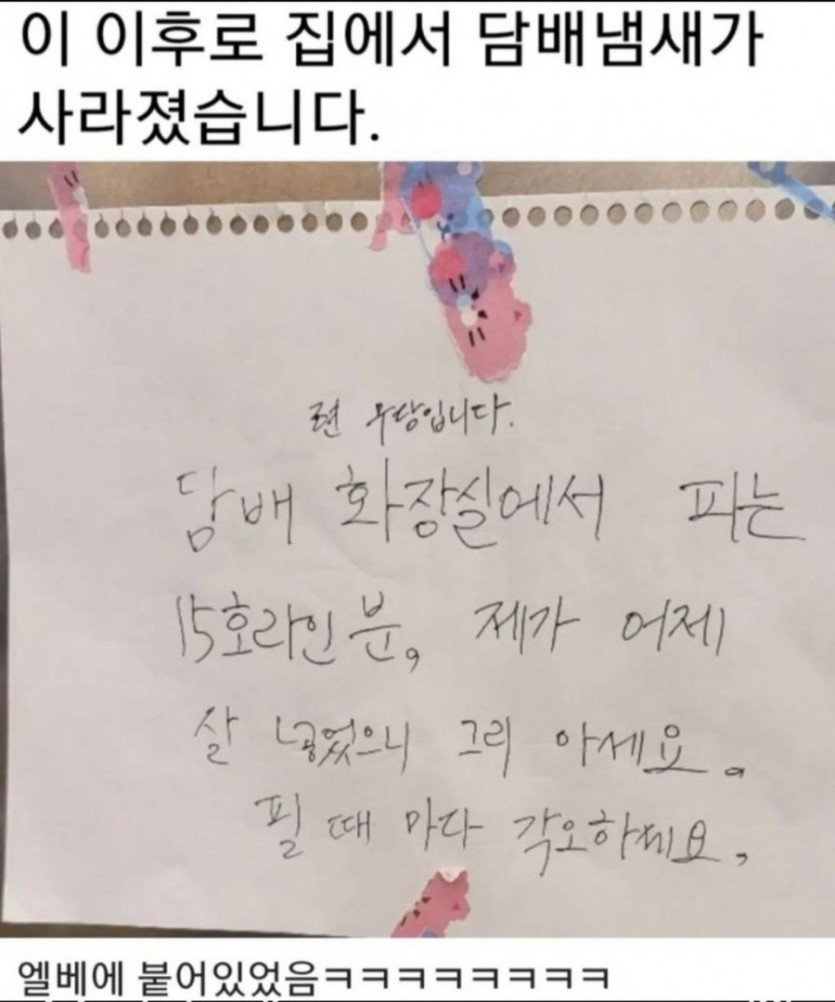 이 이후로 집에서 담배냄새가
사라졌습니다.
현 무당입니다.
담배 화장실에서 피는
15호라인 분, 제가 어제
살 넣었으니 그리 아세요.
필 때 마다 각오하세요,
엘베에 붙어있었음ㅋㅋㅋㅋㅋㅋㅋㅋ